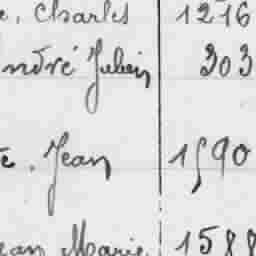 e, Charles 1216
ndré Julien 303
e, Jean 1590
ean Marie 1588